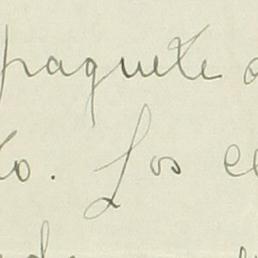 paquete
to. Los